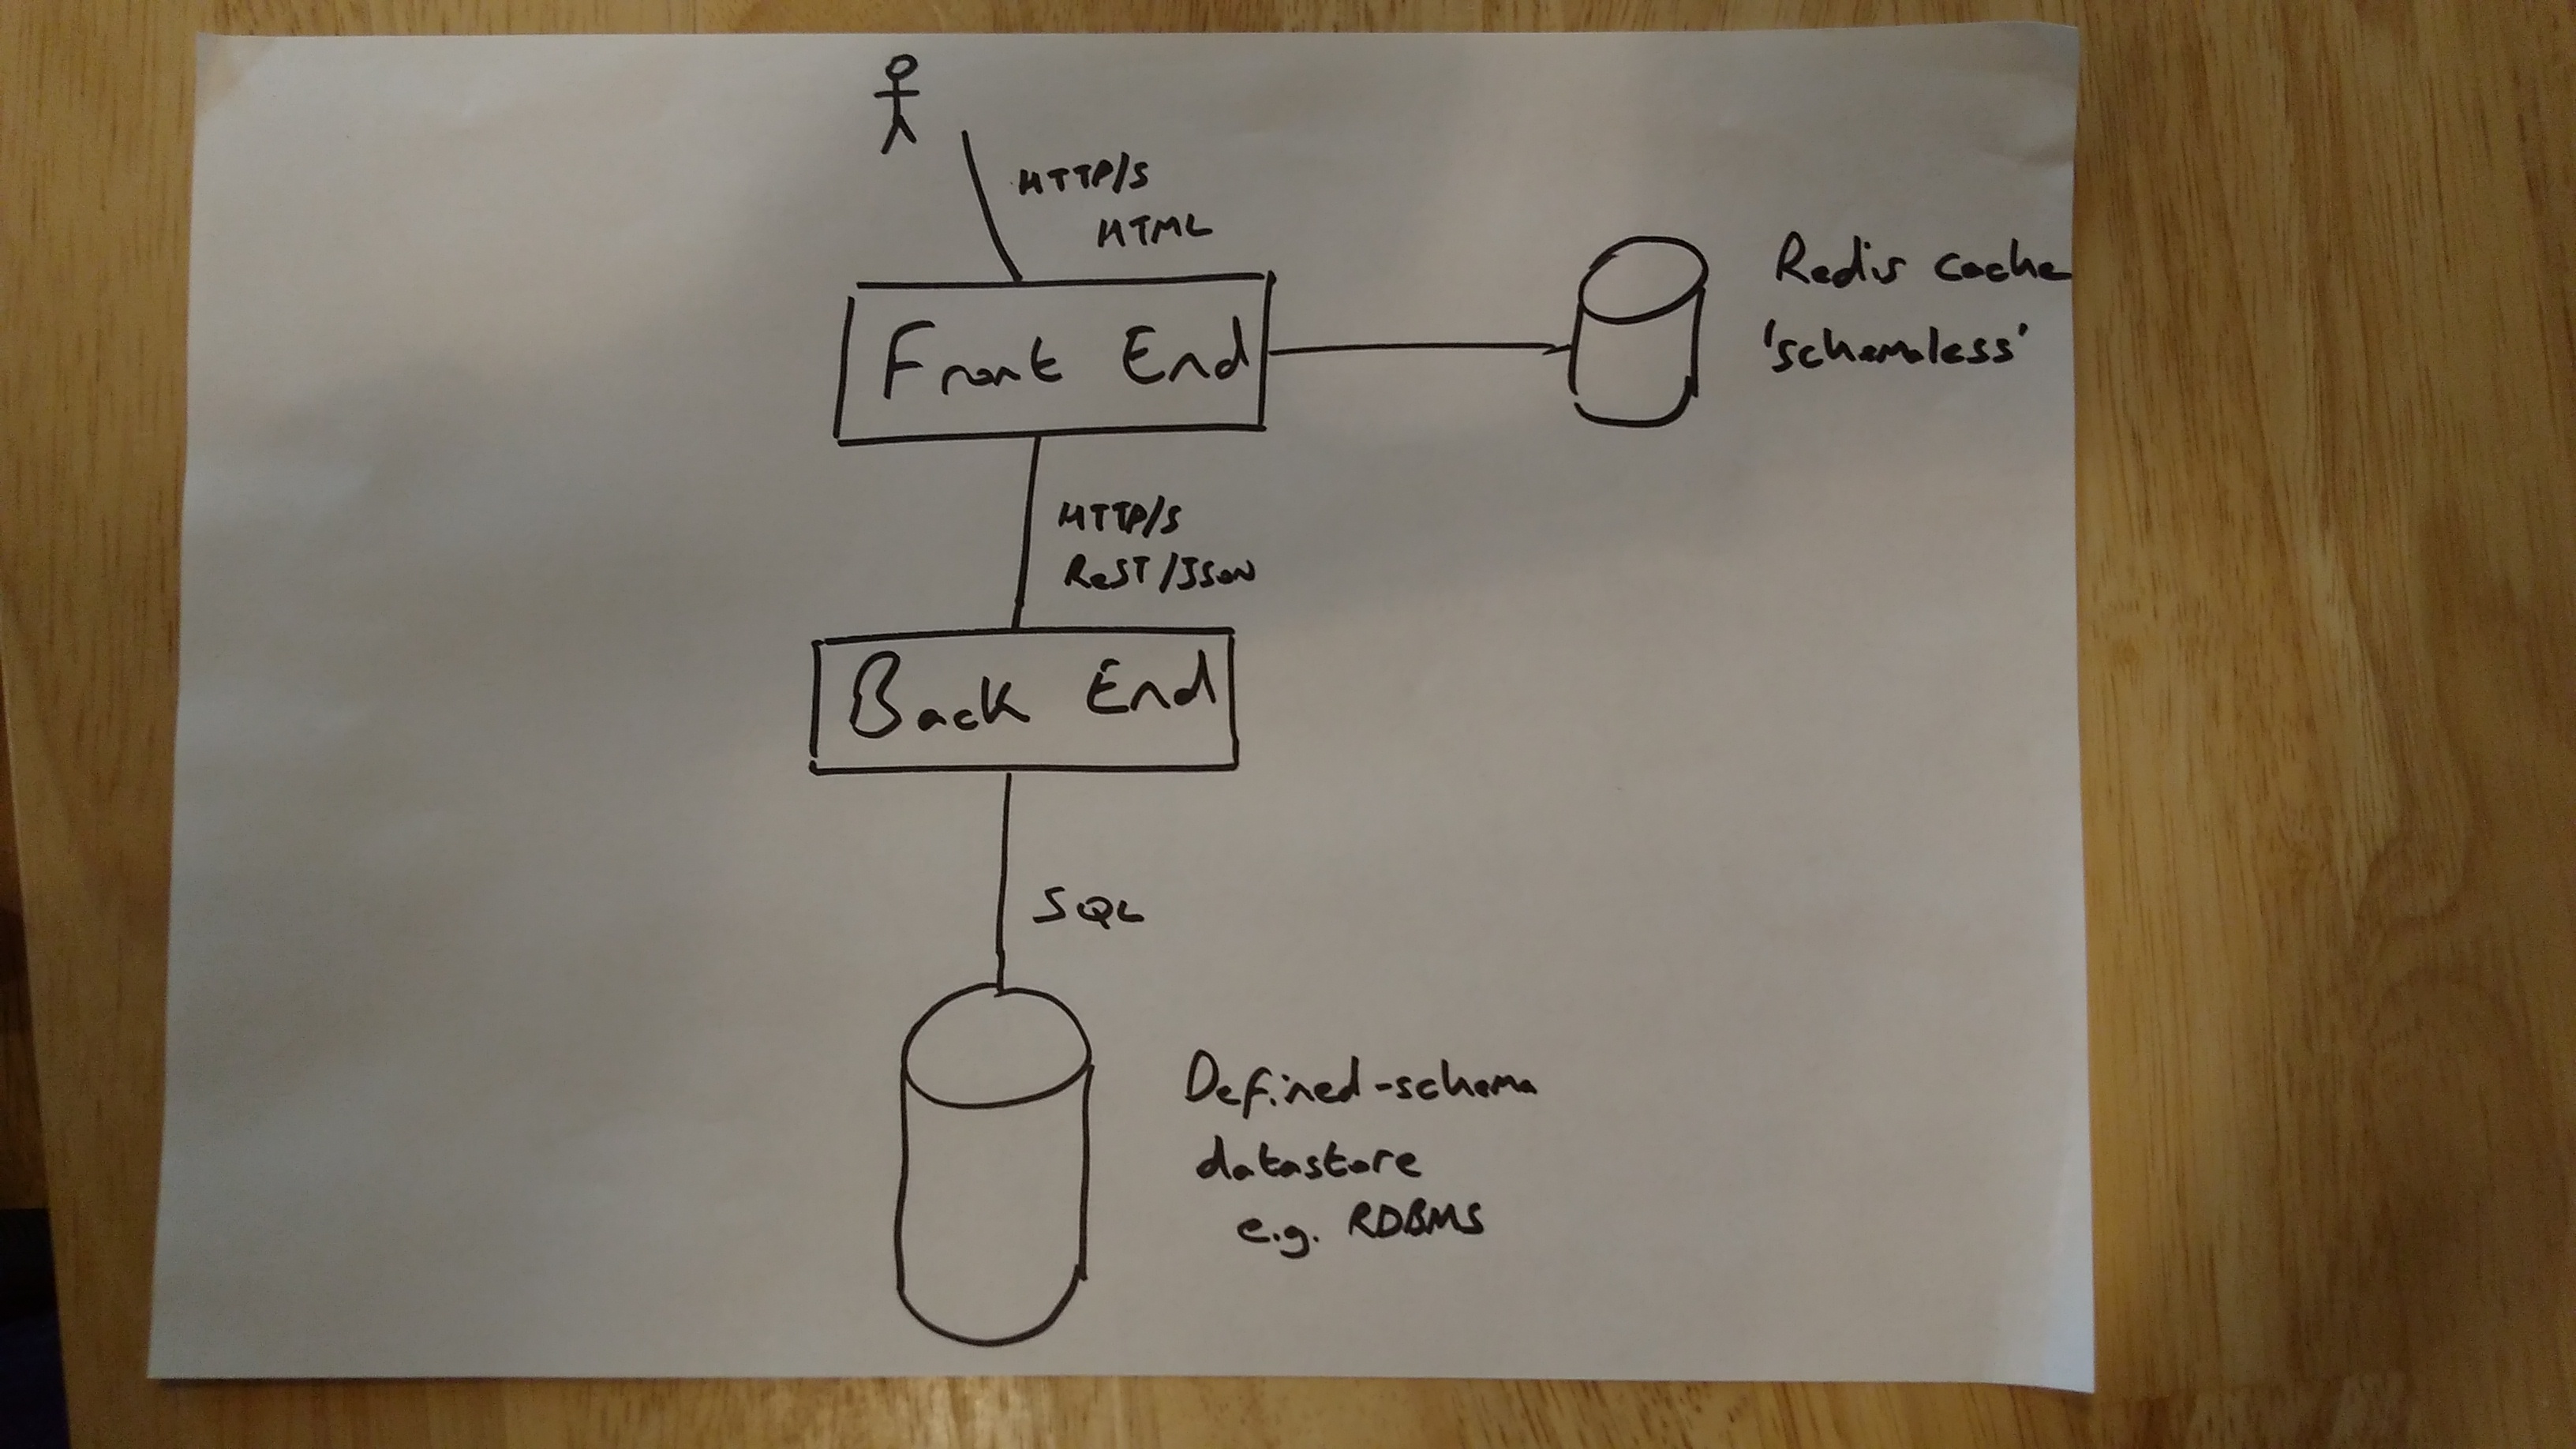 HTTP/S
HTML
Front End
Redis cache
'schemaless'
HTTP/S
ReST/JSON
Back End
SQL
Defined-schema
datastore
e.g. RDBMS